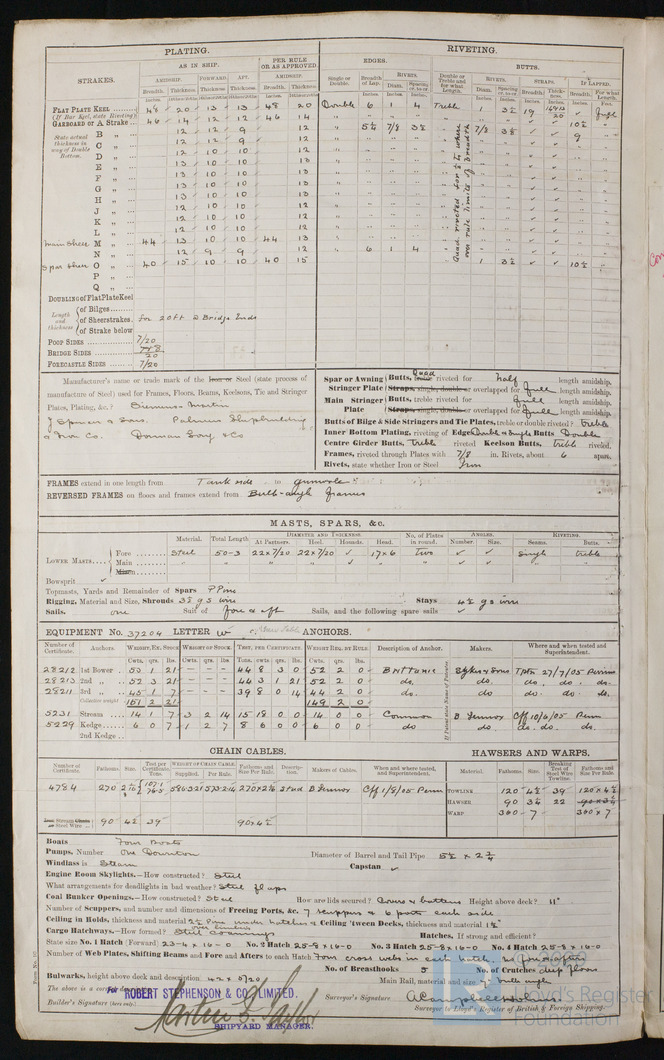 PLATING.
RIVETING.
STRAKES.
AS IN SHIP.
PER RULE OR AS APPROVED.
EDGES.
BUTTS.
AMIDSHIP. FORWARD. AFT. AMIDSHIP.
Single or Double. Breadth of Lap. RIVETS. Double or Treble and for what Length. RIVETS. STRAPS. IF LAPPED.
Breadth. Thickness. Thickness. Thickness. Breadth. Thickness. Diam. Spacing cr. to cr. Diam. Spacing cr. to cr. Breadth. Thickness. Breadth. For what Length.
FLAT PLATE KEEL 48 20 13 13 48 20 Double 6 1 4 Treble 1 3½ 19
(If Bar Keel, state Riveting)
GARBOARD or A Strake 46 14 12 12 46 14
State actual thickness in way of Double Bottom.
B „ 12 12 9 12 5½ 7/8 3½ 7/8 3½ 9
C „ 12 12 9 12
D „ 12 10 10 12
E „ 13 10 10 13
F „ 13 10 10 13
G „ 13 10 10 13
H „ 13 10 10 13
J „ 12 10 10 12
K „ 12 10 10 12
L „ 12 10 10 12
Main Sheer M „ 44 13 10 10 44 13
N „ 12 9 9 12 6 1 4
Spar Sheer O „ 40 15 10 10 40 15 1 3½ 10½
P „
Q „
Quad. riveted for ½ L where over rule limits of breadth
DOUBLING of Flat Plate Keel
Length and thickness
of Bilges
of Sheerstrakes. for 20 ft @ Bridge Ends
of Strake below
POOP SIDES 7/20
BRIDGE SIDES
FORECASTLE SIDES 7/20
Manufacturer's name or trade mark of the Iron or Steel (state process of
manufacture of Steel) used for Frames, Floors, Beams, Keelsons, Tie and Stringer
Plates, Plating, &c.? Siemens-Martin
J Spencer & Sons. Palmers Shipbuilding
& Iron Co. Dorman Long & Co
Spar or Awning Stringer Plate Butts, Quad riveted for half length amidship.
Straps, single, double or overlapped for full length amidship.
Main Stringer Plate Butts, treble riveted for full length amidship.
Straps, single, double or overlapped for full length amidship.
Butts of Bilge & Side Stringers and Tie Plates, treble or double riveted? treble
Inner Bottom Plating, riveting of Edges Double & Single Butts Double
Centre Girder Butts, Treble riveted Keelson Butts, treble riveted.
Frames, riveted through Plates with 7/8 in. Rivets, about 6 apart.
Rivets, state whether Iron or Steel Iron
FRAMES extend in one length from Tank side to gunwale
REVERSED FRAMES on floors and frames extend from Bulb-angle frames
MASTS, SPARS, &c.
Material. Total Length DIAMETER AND THICKNESS At Partners. Heel. Hounds. Head. No. of Plates in round. ANGLES. Number. Size. RIVETING. Seams. Butts.
LOWER MASTS Fore Steel 50-3 22x7/20 22x7/20 ✓ 17x6 two ✓ ✓ Single treble
Main
Mizen
Bowsprit ✓
Topmasts, Yards and Remainder of Spars P Pine
Rigging, Material and Size, Shrouds 3½ g s wire Stays 4½ g s wire
Sails. one Suit of fore & aft Sails, and the following spare sails ✓
EQUIPMENT No. 37204 LETTER W ANCHORS.
Number of Certificate. Anchors WEIGHT, EX. STOCK WEIGHT OF STOCK. TEST, PER CERTIFICATE. WEIGHT REQ. BY RULE Description of Anchor. Makers. Where and when tested and Superintendent.
Cwts. qrs. lbs Cwts. qrs. lbs Tons. cwts. qrs. lbs Cwts. qrs. lbs
28212 1st Bower 53 1 21 – – – 44 8 3 0 52 2 0 Sykes & Sons Tptn 27/7/05
28213 2nd „ 52 3 21 – – – 44 3 1 21 52 2 0 do. do. do. do.
28211 3rd „ 45 1 7 – – – 39 8 0 14 44 2 0 do. do do. do.
Collective weight 151 2 21 149 2 0
5231 Stream 14 1 7 3 2 14 15 18 0 0 14 0 0 Common
5229 Kedge 6 0 7 1 2 7 8 6 0 0 6 0 0 do do do. do.
2nd Kedge
CHAIN CABLES.
HAWSERS AND WARPS.
Number of Certificate. Fathoms. Size. Test per Certificate, Tons. WEIGHT OF CHAIN CABLE. Supplied. Per Rule. Fathoms and Size Per Rule. Description. Makers of Cables. When and where tested, and Superintendent.
Material. Fathoms Size. Breaking Test of Steel Wire Towline. Fathoms and Size Per Rule.
4784 270 Stud Cff 1/8/05
TOWLINE 120 4½ 39 120 x 4½
HAWSER 90 3¼ 22 90 x 3¼
WARP 360 7 360 x 7
Stream Chain or Steel Wire 90 4½ 39 90x4½
Boats Four Boats
Pumps, Number One Downton Diameter of Barrel and Tail Pipe 5½ x 2¾
Windlass is Steam Capstan ✓
Engine Room Skylights.—How constructed? Steel
What arrangements for deadlights in bad weather? Steel flaps
Coal Bunker Openings.—How constructed? Steel How are lids secured? Covers & battens Height above deck? 11"
Number of Scuppers, and number and dimensions of Freeing Ports, &c. 7 scuppers & 6 ports each side.
Ceiling in Holds, thickness and material 2½ Pine under hatches & over limbers Ceiling 'tween Decks, thickness and material 1½"
Cargo Hatchways.—How formed? Steel coamings Hatches, If strong and efficient?
State size No. 1 Hatch (Forward) 23-4 x 16-0 No. 2 Hatch 25-8 x 16-0 No. 3 Hatch 25-8 x 16-0 No. 4 Hatch 25-8 x 16-0
Number of Web Plates, Shifting Beams and Fore and Afters to each Hatch Four cross webs in each hatch, no fore & afters
No. of Breasthooks 5 No. of Crutches deep floors
Bulwarks, height above deck and description 42 x 6/20 Main Rail, material and size bulb angle
The above is a correct
For ROBERT STEPHENSON & CO. LIMITED.
Builder's Signature (here only)
SHIPYARD MANAGER.
Surveyor's Signature
Surveyor to Lloyd's Register of British & Foreign Shipping.
Lloyd's Register
Foundation